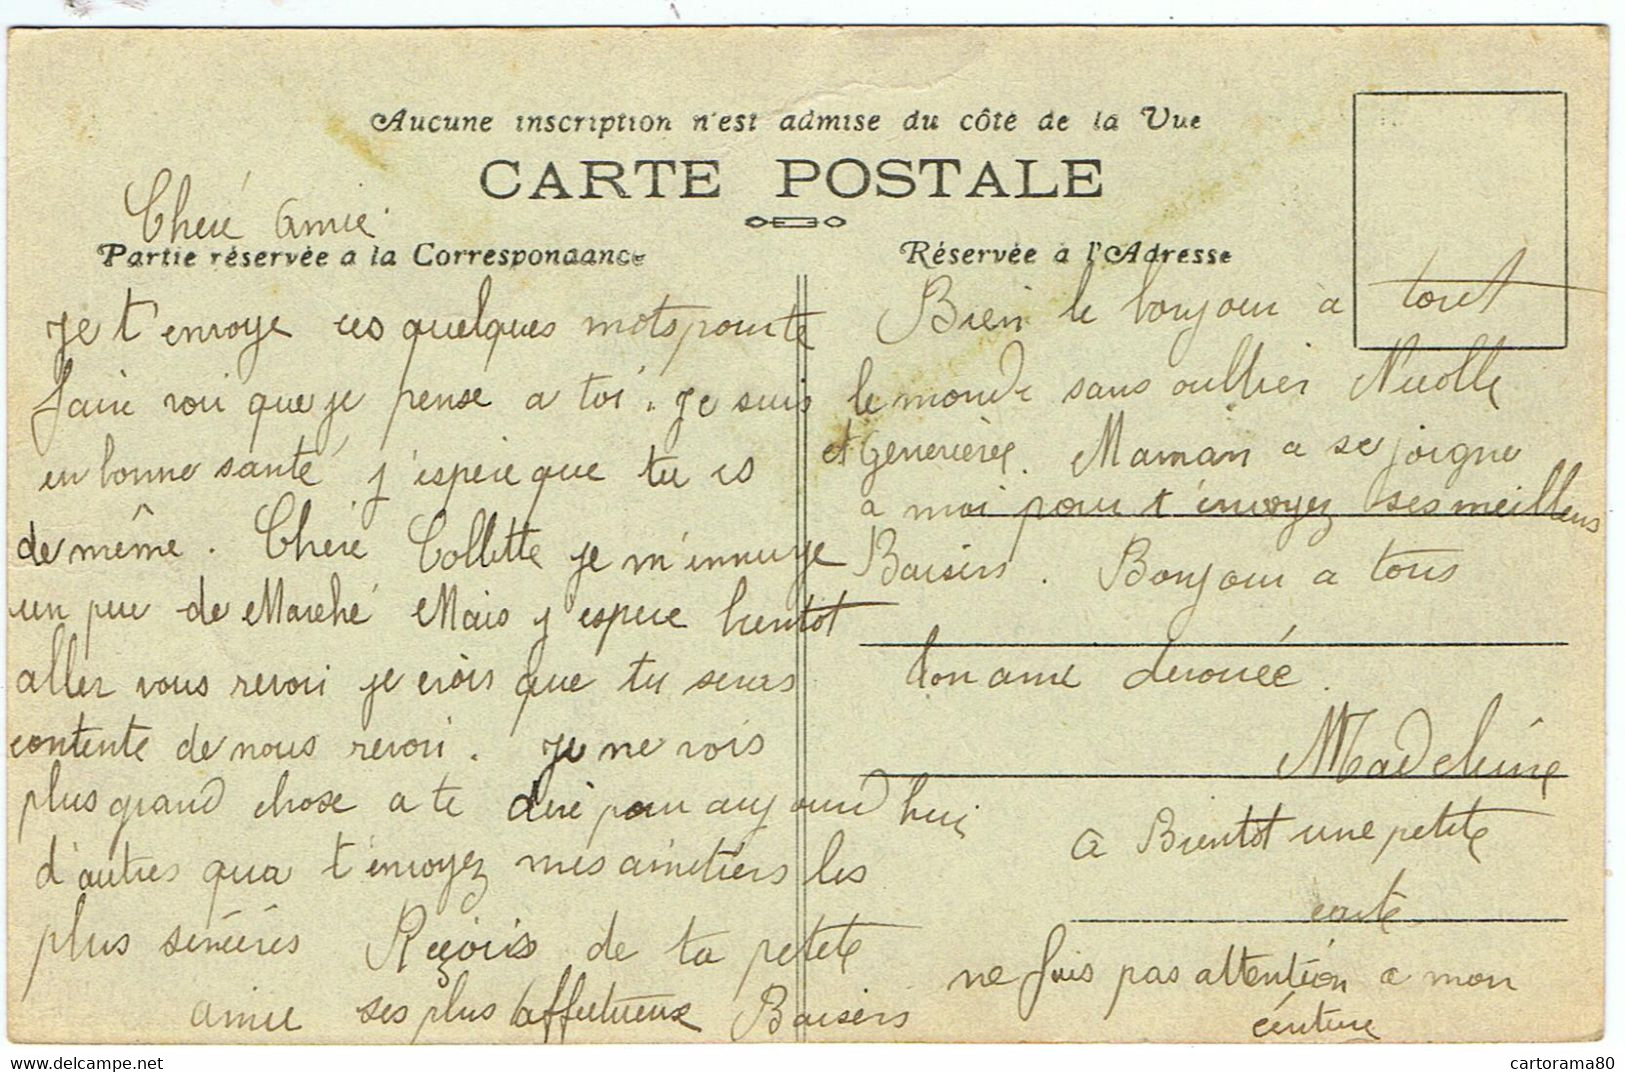 Aucune inscription n'est admise du côté de la Vue
CARTE POSTALE
Cheré amie.
Partie réservée a la Correspondance
Je t'envoye ces quelques mots pour te
faire voir que je pense a toi. Je suis
en bonne santé j'espere que tu es
de même. Cheré Collette je m'ennuye
un peu de Marché Mais j'espere bientot
aller vous revoir je crois que tu seras
contente de nous revoir. Je ne vois
plus grand chose a te diré pour aujourd hui
d'autres qua t'envoyez mes amitiers les
plus sinceres Reçois de ta petite
amie ses plus affectueux Baisers
Réservée à l'Adresse
Bien le bonjour à tout
le monde sans oublier Nicolle
et Genevieve. Maman a se joigne
a moi pour t'envoyez ses meilleurs
Baisers. Bonjour a tous
Ton amie devouée.
Madeleine
a Bientot une petite
carte
ne fais pas attention a mon
écriture
cartorama80